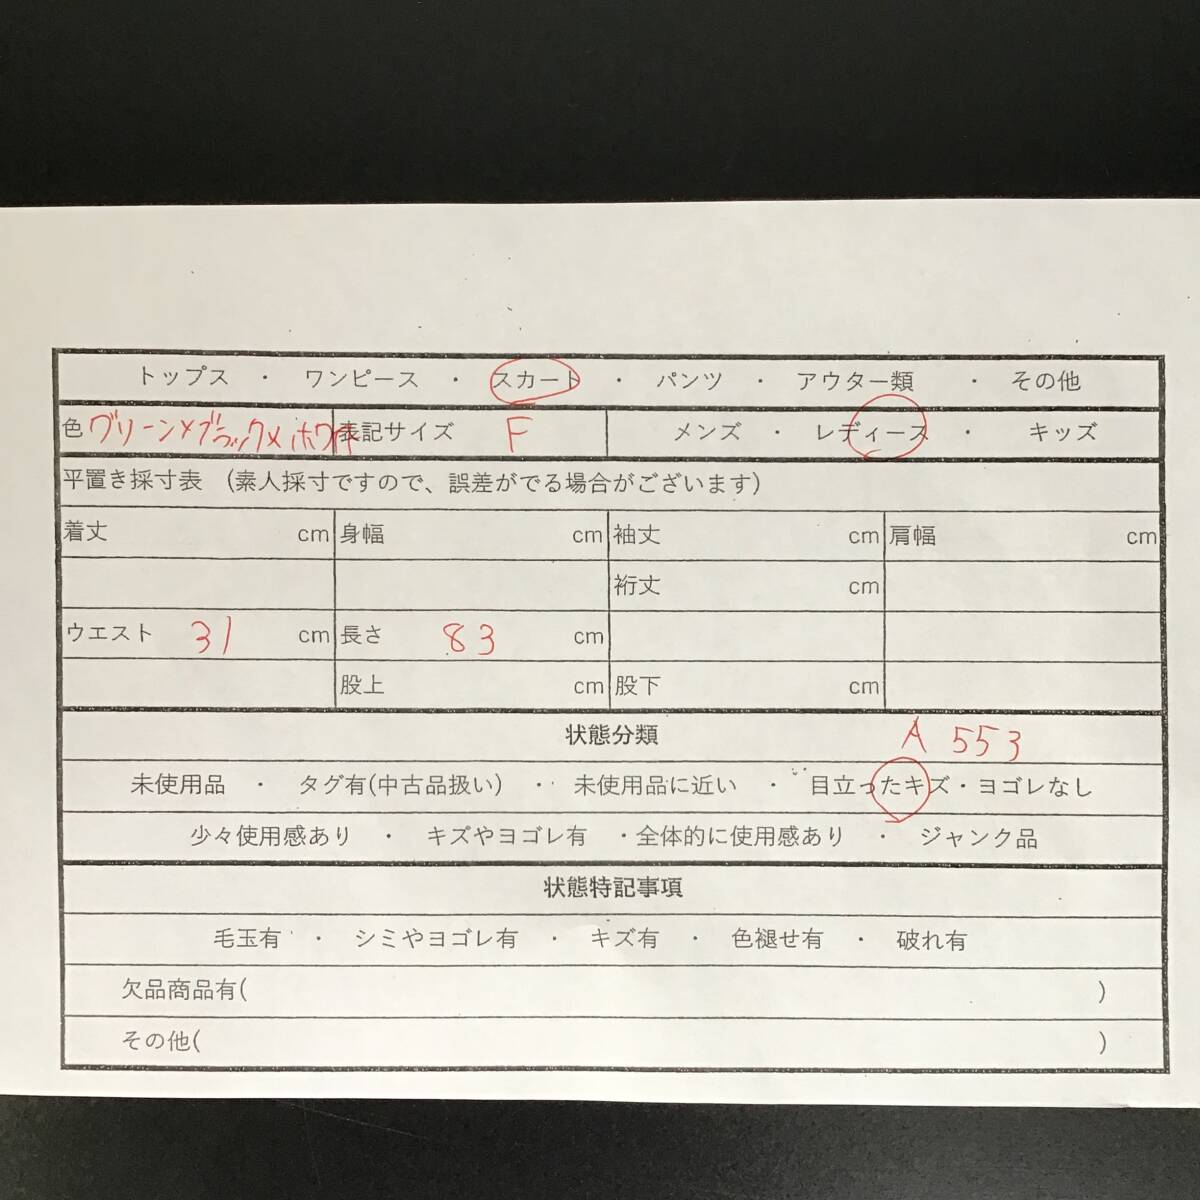 トップス ・ ワンピース ・ スカート ・ パンツ ・ アウター類 ・ その他
色 グリーン×ブラック×ホワイト 表記サイズ F メンズ ・ レディース ・ キッズ
平置き採寸表 (素人採寸ですので、誤差がでる場合がございます)
着丈 cm 身幅 cm 袖丈 cm 肩幅 cm
裄丈 cm
ウエスト 31 cm 長さ 83 cm
股上 cm 股下 cm
状態分類 A 553
未使用品 ・ タグ有(中古品扱い) ・ 未使用品に近い ・ 目立ったキズ・ヨゴレなし
少々使用感あり ・ キズやヨゴレ有 ・全体的に使用感あり ・ ジャンク品
状態特記事項
毛玉有 ・ シミやヨゴレ有 ・ キズ有 ・ 色褪せ有 ・ 破れ有
欠品商品有( )
その他( )